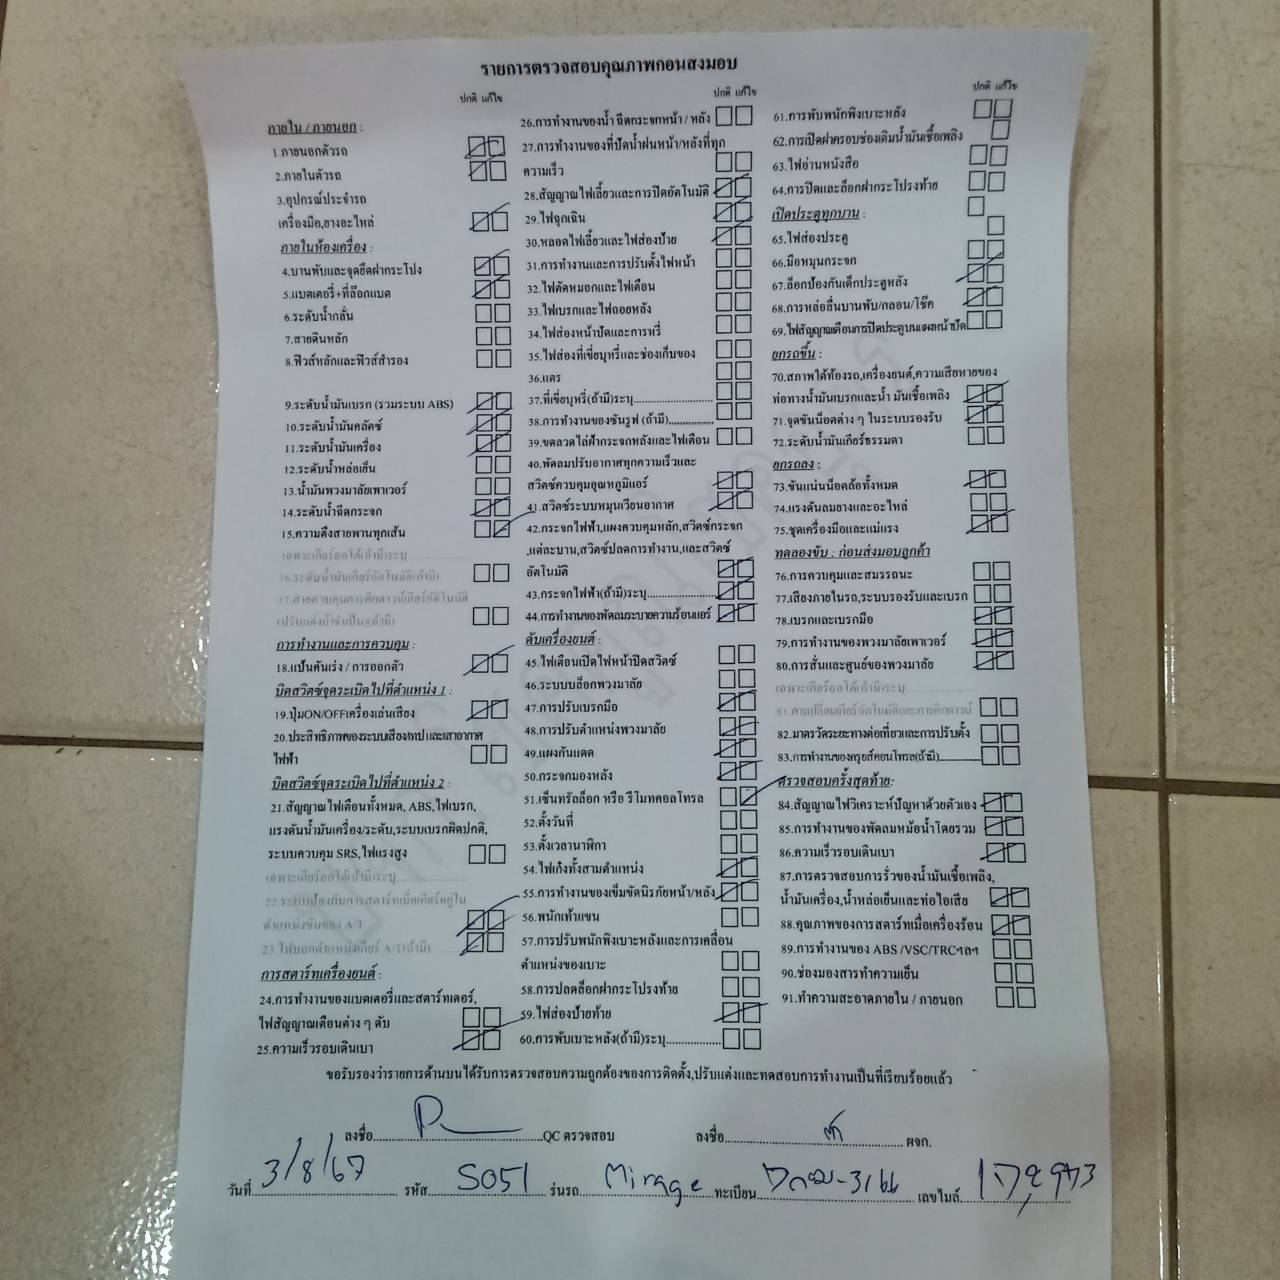 รายการตรวจสอบคุณภาพก่อนส่งมอบ
ปกติ แก้ไข
ภายใน / ภายนอก :
1.ภายนอกตัวรถ
2.ภายในตัวรถ
3.อุปกรณ์ประจำรถ
เครื่องมือ,ยางอะไหล่
ภายในห้องเครื่อง :
4.บานพับและจุดยึดฝากระโปง
5.แบตเตอรี่+ที่ล็อกแบต
6.ระดับน้ำกลั่น
7.สายดินหลัก
8.ฟิวส์หลักและฟิวส์สำรอง
9.ระดับน้ำมันเบรก (รวมระบบ ABS)
10.ระดับน้ำมันคลัตซ์
11.ระดับน้ำมันเครื่อง
12.ระดับน้ำหล่อเย็น
13.น้ำมันพวงมาลัยเพาเวอร์
14.ระดับน้ำฉีดกระจก
15.ความตึงสายพานทุกเส้น
เฉพาะเกียร์ออโต้(ถ้ามี)ระบุ
16.ระดับน้ำมันเกียร์อัตโนมัติ(ถ้ามี)
17.สายควบคุมการคิกดาวน์เกียร์อัติโนมัติ
(ปรับแต่งถ้าจำเป็น)(ถ้ามี)
การทำงานและการควบคุม :
18.แป้นคันเร่ง / การออกตัว
บิดสวิตซ์จุดระเบิดไปที่ตำแหน่ง 1 :
19.ปุ่มON/OFFเครื่องเล่นเสียง
20.ประสิทธิภาพของระบบเสียง/เทป และเสาอากาศ
ไฟฟ้า
บิดสวิตซ์จุดระเบิดไปที่ตำแหน่ง 2 :
21.สัญญาณไฟเตือนทั้งหมด, ABS,ไฟเบรก,
แรงดันน้ำมันเครื่อง/ระดับ,ระบบเบรกผิดปกติ,
ระบบควบคุม SRS,ไฟแรงสูง
เฉพาะเกียร์ออโต้(ถ้ามี)ระบุ
22.ระบบป้องกันการสตาร์ทเมื่อเกียร์อยู่ใน
ตำแหน่งขับของ A/T
23.ไฟบอกตำแหน่งเกียร์ A/T(ถ้ามี)
การสตาร์ทเครื่องยนต์ :
24.การทำงานของแบตเตอรี่และสตาร์ทเตอร์,
ไฟสัญญาณเตือนต่าง ๆ ดับ
25.ความเร็วรอบเดินเบา
ปกติ แก้ไข
26.การทำงานของน้ำ ฉีดกระจกหน้า / หลัง
27.การทำงานของที่ปัดน้ำฝนหน้า/หลังที่ทุก
ความเร็ว
28.สัญญาณไฟเลี้ยวและการปิดอัตโนมัติ
29.ไฟฉุกเฉิน
30.หลอดไฟเลี้ยวและไฟส่องป้าย
31.การทำงานและการปรับตั้งไฟหน้า
32.ไฟตัดหมอกและไฟเตือน
33.ไฟเบรกและไฟถอยหลัง
34.ไฟส่องหน้าปัดและการหรี่
35.ไฟส่องที่เขี่ยบุหรี่และช่องเก็บของ
36.แตร
37.ที่เขี่ยบุหรี่(ถ้ามี)ระบุ
38.การทำงานของซันรูฟ (ถ้ามี)
39.ขดลวดไล่ฝ้ากระจกหลังและไฟเตือน
40.พัดลมปรับอากาศทุกความเร็วและ
สวิตซ์ควบคุมอุณหภูมิแอร์
41.สวิตซ์ระบบหมุนเวียนอากาศ
42.กระจกไฟฟ้า,แผงควบคุมหลัก,สวิตซ์กระจก
,แต่ละบาน,สวิตซ์ปลดการทำงาน,และสวิตซ์
อัตโนมัติ
43.กระจกไฟฟ้า(ถ้ามี)ระบุ
44.การทำงานของพัดลมระบายความร้อนแอร์
ดับเครื่องยนต์ :
45.ไฟเตือนเปิดไฟหน้าปิดสวิตซ์
46.ระบบบล็อกพวงมาลัย
47.การปรับเบรกมือ
48.การปรับตำแหน่งพวงมาลัย
49.แผงกันแดด
50.กระจกมองหลัง
51.เซ็นทรัลล็อก หรือ รีโมทคอลโทรล
52.ตั้งวันที่
53.ตั้งเวลานาฬิกา
54.ไฟเก๋งทั้งสามตำแหน่ง
55.การทำงานของเข็มขัดนิรภัยหน้า/หลัง
56.พนักเท้าแขน
57.การปรับพนักพิงเบาะหลังและการเคลื่อน
ตำแหน่งของเบาะ
58.การปลดล็อกฝากระโปรงท้าย
59.ไฟส่องป้ายท้าย
60.การพับเบาะหลัง(ถ้ามี)ระบุ
ปกติ แก้ไข
61.การพับพนักพิงเบาะหลัง
62.การเปิดฝาครอบช่องเติมน้ำมันเชื้อเพลิง
63.ไฟอ่านหนังสือ
64.การปิดและล็อกฝากระโปรงท้าย
เปิดประตูทุกบาน :
65.ไฟส่องประตู
66.มือหมุนกระจก
67.ล็อกป้องกันเด็กประตูหลัง
68.การหล่อลื่นบานพับ/กลอน/โช๊ค
69.ไฟสัญญาณเตือนการปิดประตูบนแผงหน้าปัด
ยกรถขึ้น :
70.สภาพใต้ท้องรถ,เครื่องยนต์,ความเสียหายของ
ท่อทางน้ำมันเบรกและน้ำ มันเชื้อเพลิง
71.จุดขันน็อตต่าง ๆ ในระบบรองรับ
72.ระดับน้ำมันเกียร์ธรรมดา
ยกรถลง :
73.ขันแน่นน็อตล้อทั้งหมด
74.แรงดันลมยางและอะไหล่
75.ชุดเครื่องมือและแม่แรง
ทดลองขับ : ก่อนส่งมอบลูกค้า
76.การควบคุมและสมรรถนะ
77.เสียงภายในรถ,ระบบรองรับและเบรก
78.เบรกและเบรกมือ
79.การทำงานของพวงมาลัยเพาเวอร์
80.การสั่นและศูนย์ของพวงมาลัย
เฉพาะเกียร์ออโต้(ถ้ามี)ระบุ
81.การเปลี่ยนเกียร์อัตโนมัติและการคิกดาวน์
82.มาตรวัดระยะทางต่อเที่ยวและการปรับตั้ง
83.การทำงานของครุยส์คอนโทรล(ถ้ามี)
ตรวจสอบครั้งสุดท้าย:
84.สัญญาณไฟวิเคราะห์ปัญหาด้วยตัวเอง
85.การทำงานของพัดลมหม้อน้ำโดยรวม
86.ความเร็วรอบเดินเบา
87.การตรวจสอบการรั่วของน้ำมันเชื้อเพลิง,
น้ำมันเครื่อง,น้ำหล่อเย็นและท่อไอเสีย
88.คุณภาพของการสตาร์ทเมื่อเครื่องร้อน
89.การทำงานของ ABS /VSC/TRCฯลฯ
90.ช่องมองสารทำความเย็น
91.ทำความสะอาดภายใน / ภายนอก
ขอรับรองว่ารายการด้านบนได้รับการตรวจสอบความถูกต้องของการติดตั้ง,ปรับแต่งและทดสอบการทำงานเป็นที่เรียบร้อยแล้ว
ลงชื่อ QC ตรวจสอบ ลงชื่อ ผจก.
วันที่ 3/8/67 รหัส S051 รุ่นรถ Mirage ทะเบียน -3166 เลขไมล์